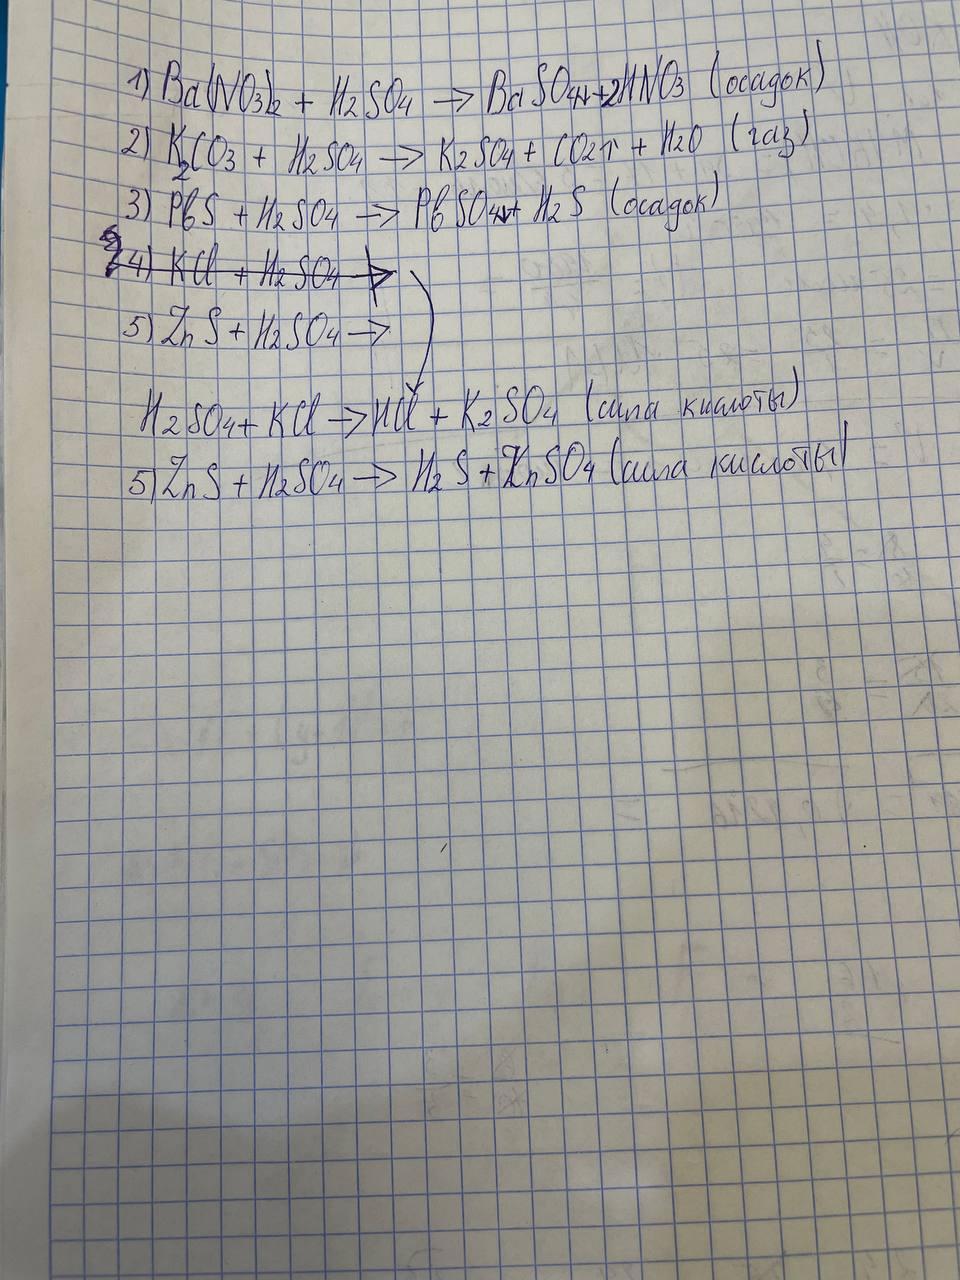 1) Ba(NO3)2 + H2SO4 → BaSO4↓+2HNO3 (осадок)
2) K2CO3 + H2SO4 → K2SO4 + CO2↑ + H2O (газ)
3) PbS + H2SO4 → PbSO4↓+ H2S (осадок)
4) KCl + H2SO4 →
5) ZnS + H2SO4 →
H2SO4 + KCl → HCl + K2SO4 (сила кислоты)
5) ZnS + H2SO4 → H2S + ZnSO4 (сила кислоты)